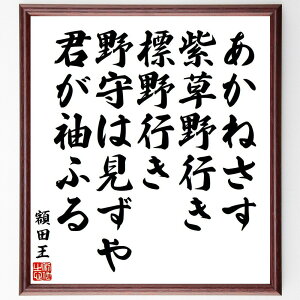 あかねさす
紫草野行き
標野行き
野守は見ずや
君が袖ふる
額田王